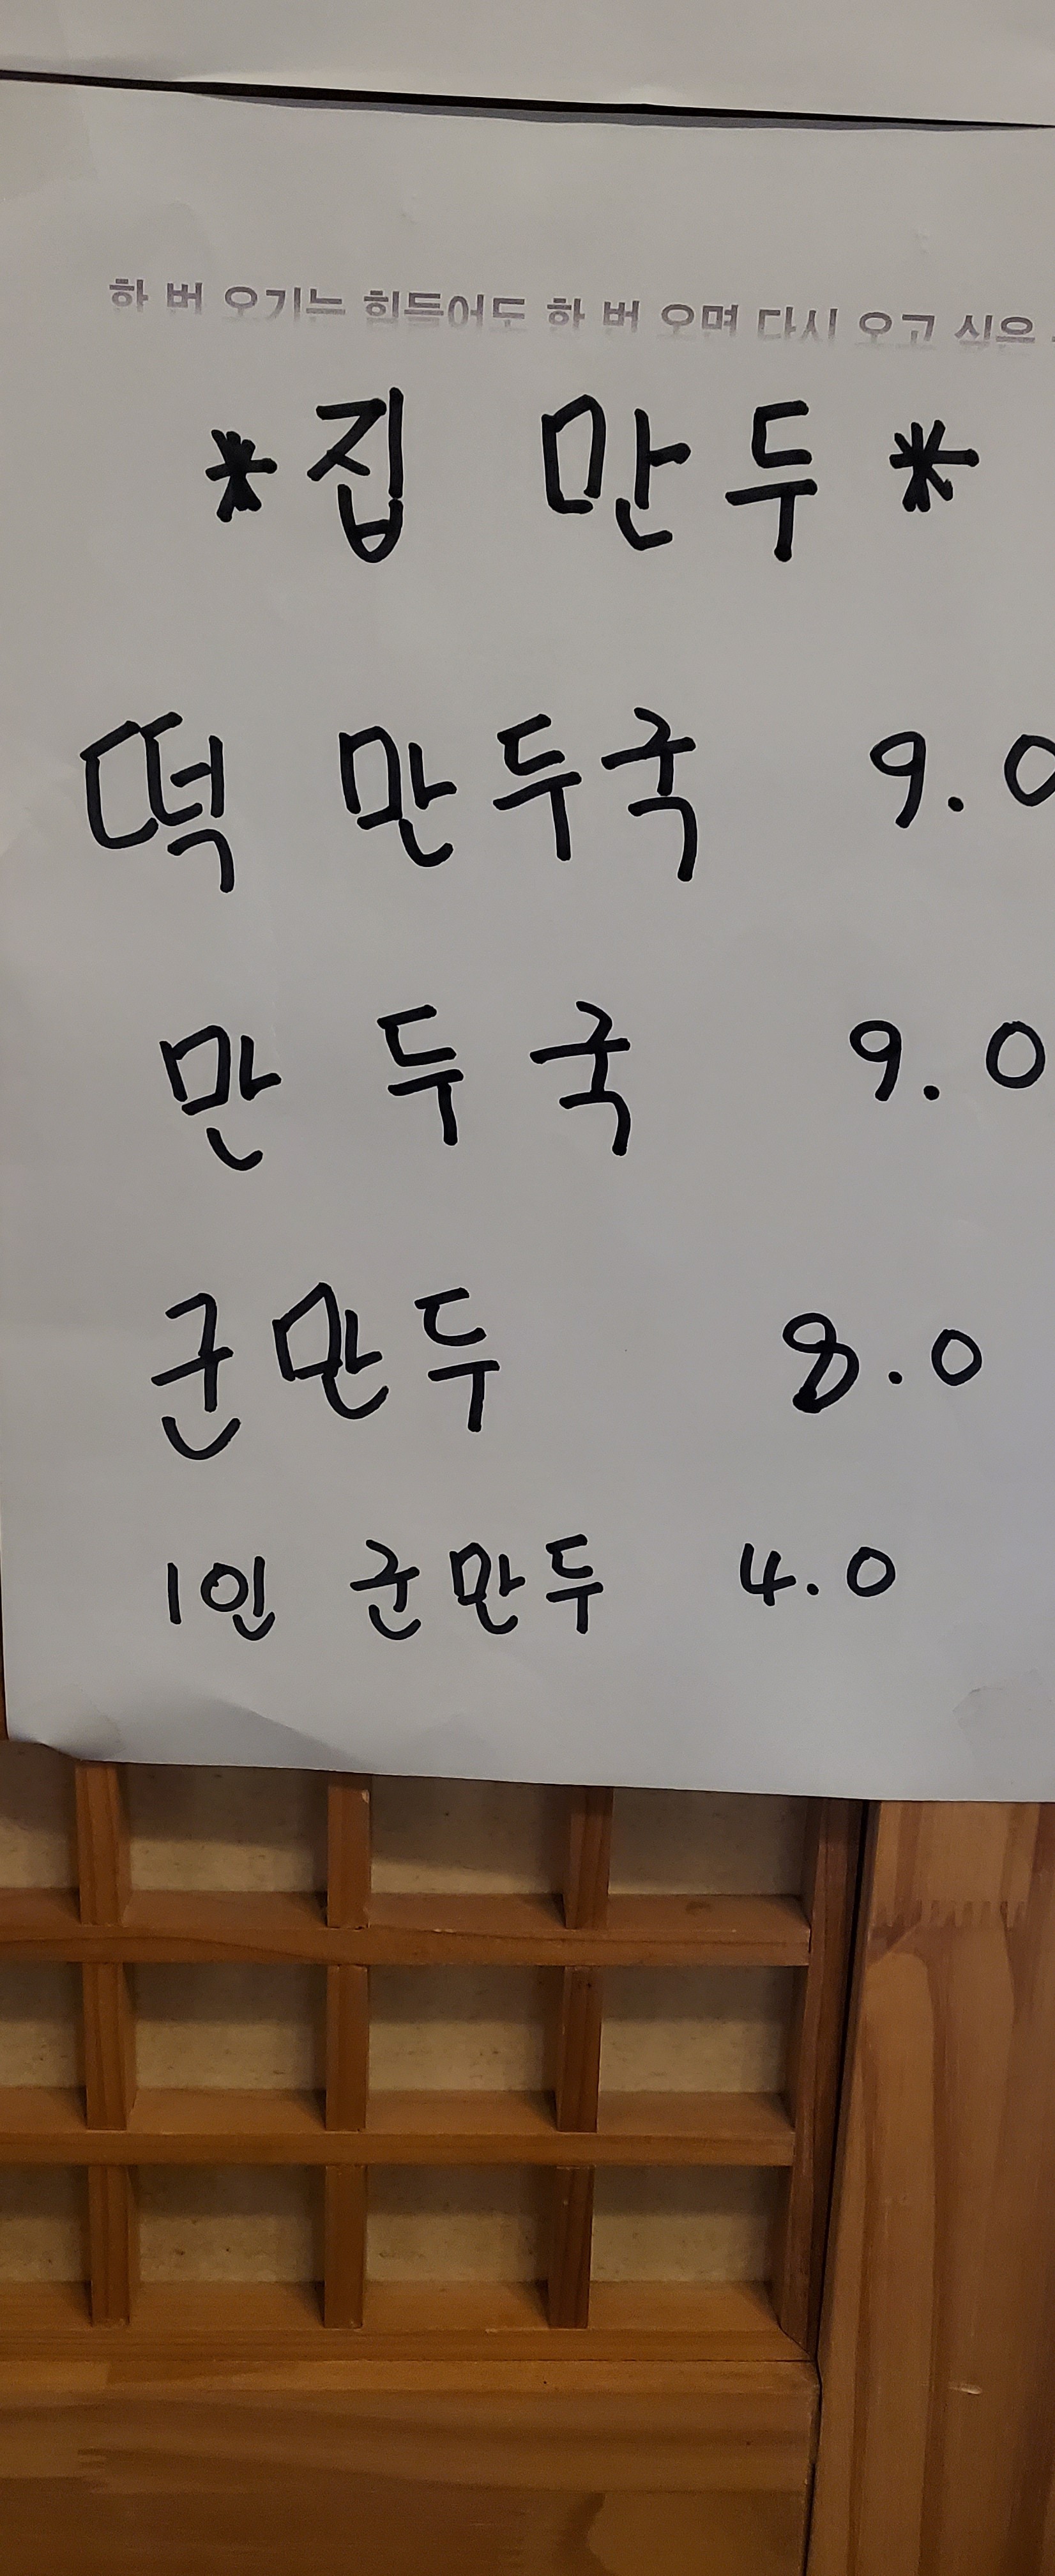 한 번 오기는 힘들어도 한 번 오면 다시 오고 싶은
*집 만두*
떡 만두국 9.0
만두국 9.0
군만두 8.0
1인 군만두 4.0